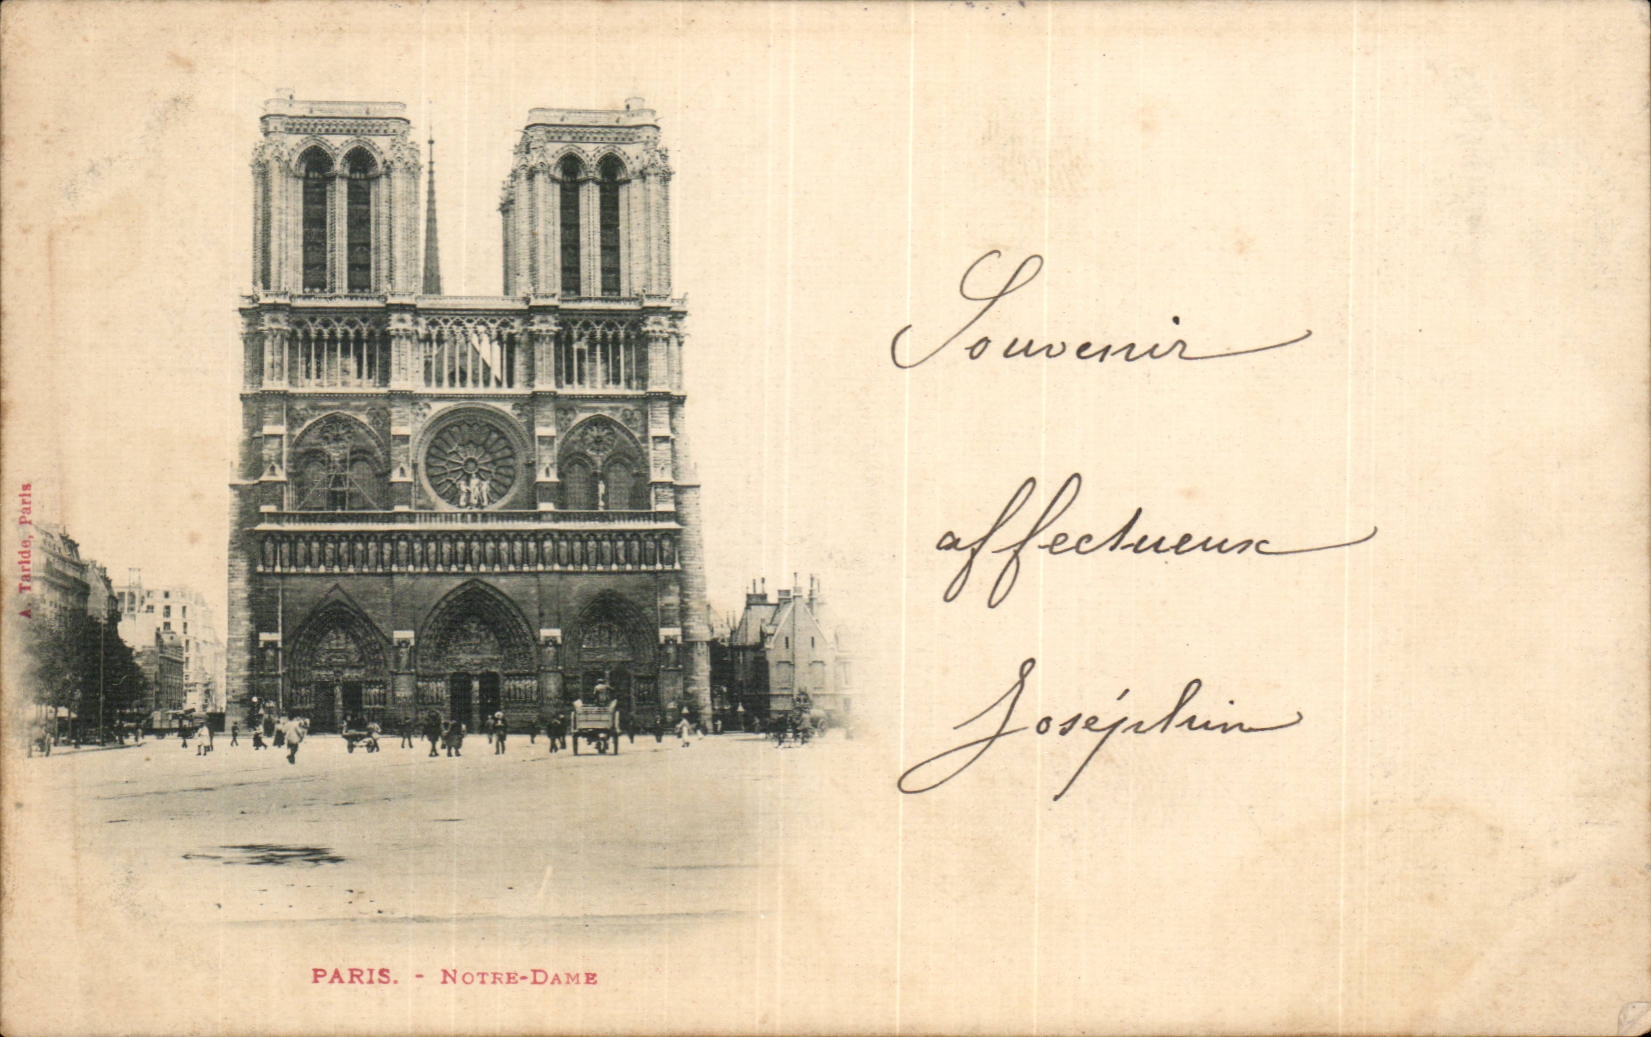 A. Taride, Paris
Souvenir
affectueux
Joséphin
PARIS. - NOTRE-DAME